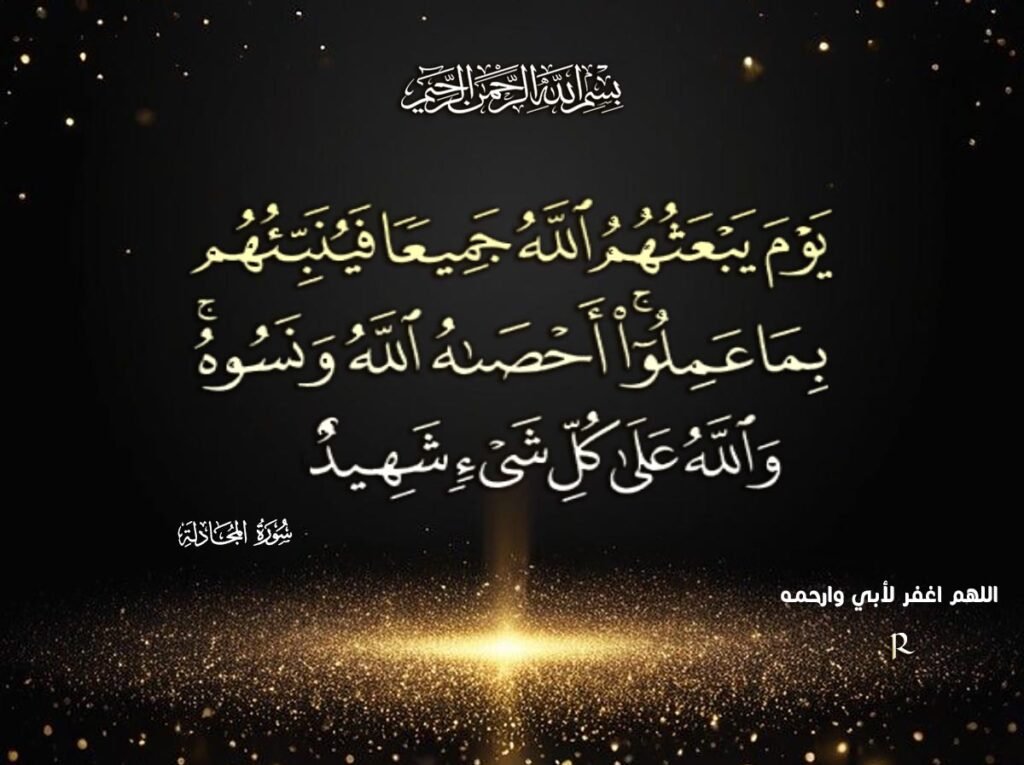 بِسْمِ اللَّهِ الرَّحْمَنِ الرَّحِيمِ
يَوْمَ يَبْعَثُهُمُ ٱللَّهُ جَمِيعًا فَيُنَبِّئُهُم
بِمَا عَمِلُوٓا۟ ۚ أَحْصَىٰهُ ٱللَّهُ وَنَسُوهُ ۚ
وَٱللَّهُ عَلَىٰ كُلِّ شَىْءٍ شَهِيدٌ
سُورَةُ المُجَادلَةِ
اللهم اغفر لأبي وارحمه
R